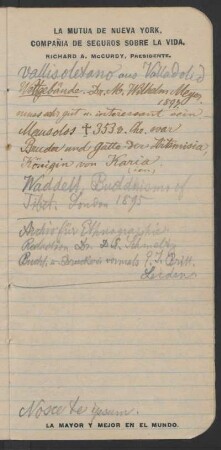 LA MUTUA DE NUEVA YORK,
COMPAÑÍA DE SEGUROS SOBRE LA VIDA,
RICHARD A. MCCURDY, PRESIDENTE.
vallisoletano aus Valladolid
Dr. M. Wilhelm Meyer,
1892
muss sehr gut u. interessant sein
Mausolos + 353 v. Chr. war
Bruder und Gatte der Artemisia,
Königin von Karia.
Waddell, Buddhism of
Tibet. London 1895
Archiv für Ethnographie
Redaktion Dr. Schmeltz
Buchh. u. Druckerei vormals E. J. Brill.
Leiden
Nosce te ipsum.
LA MAYOR Y MEJOR EN EL MUNDO.